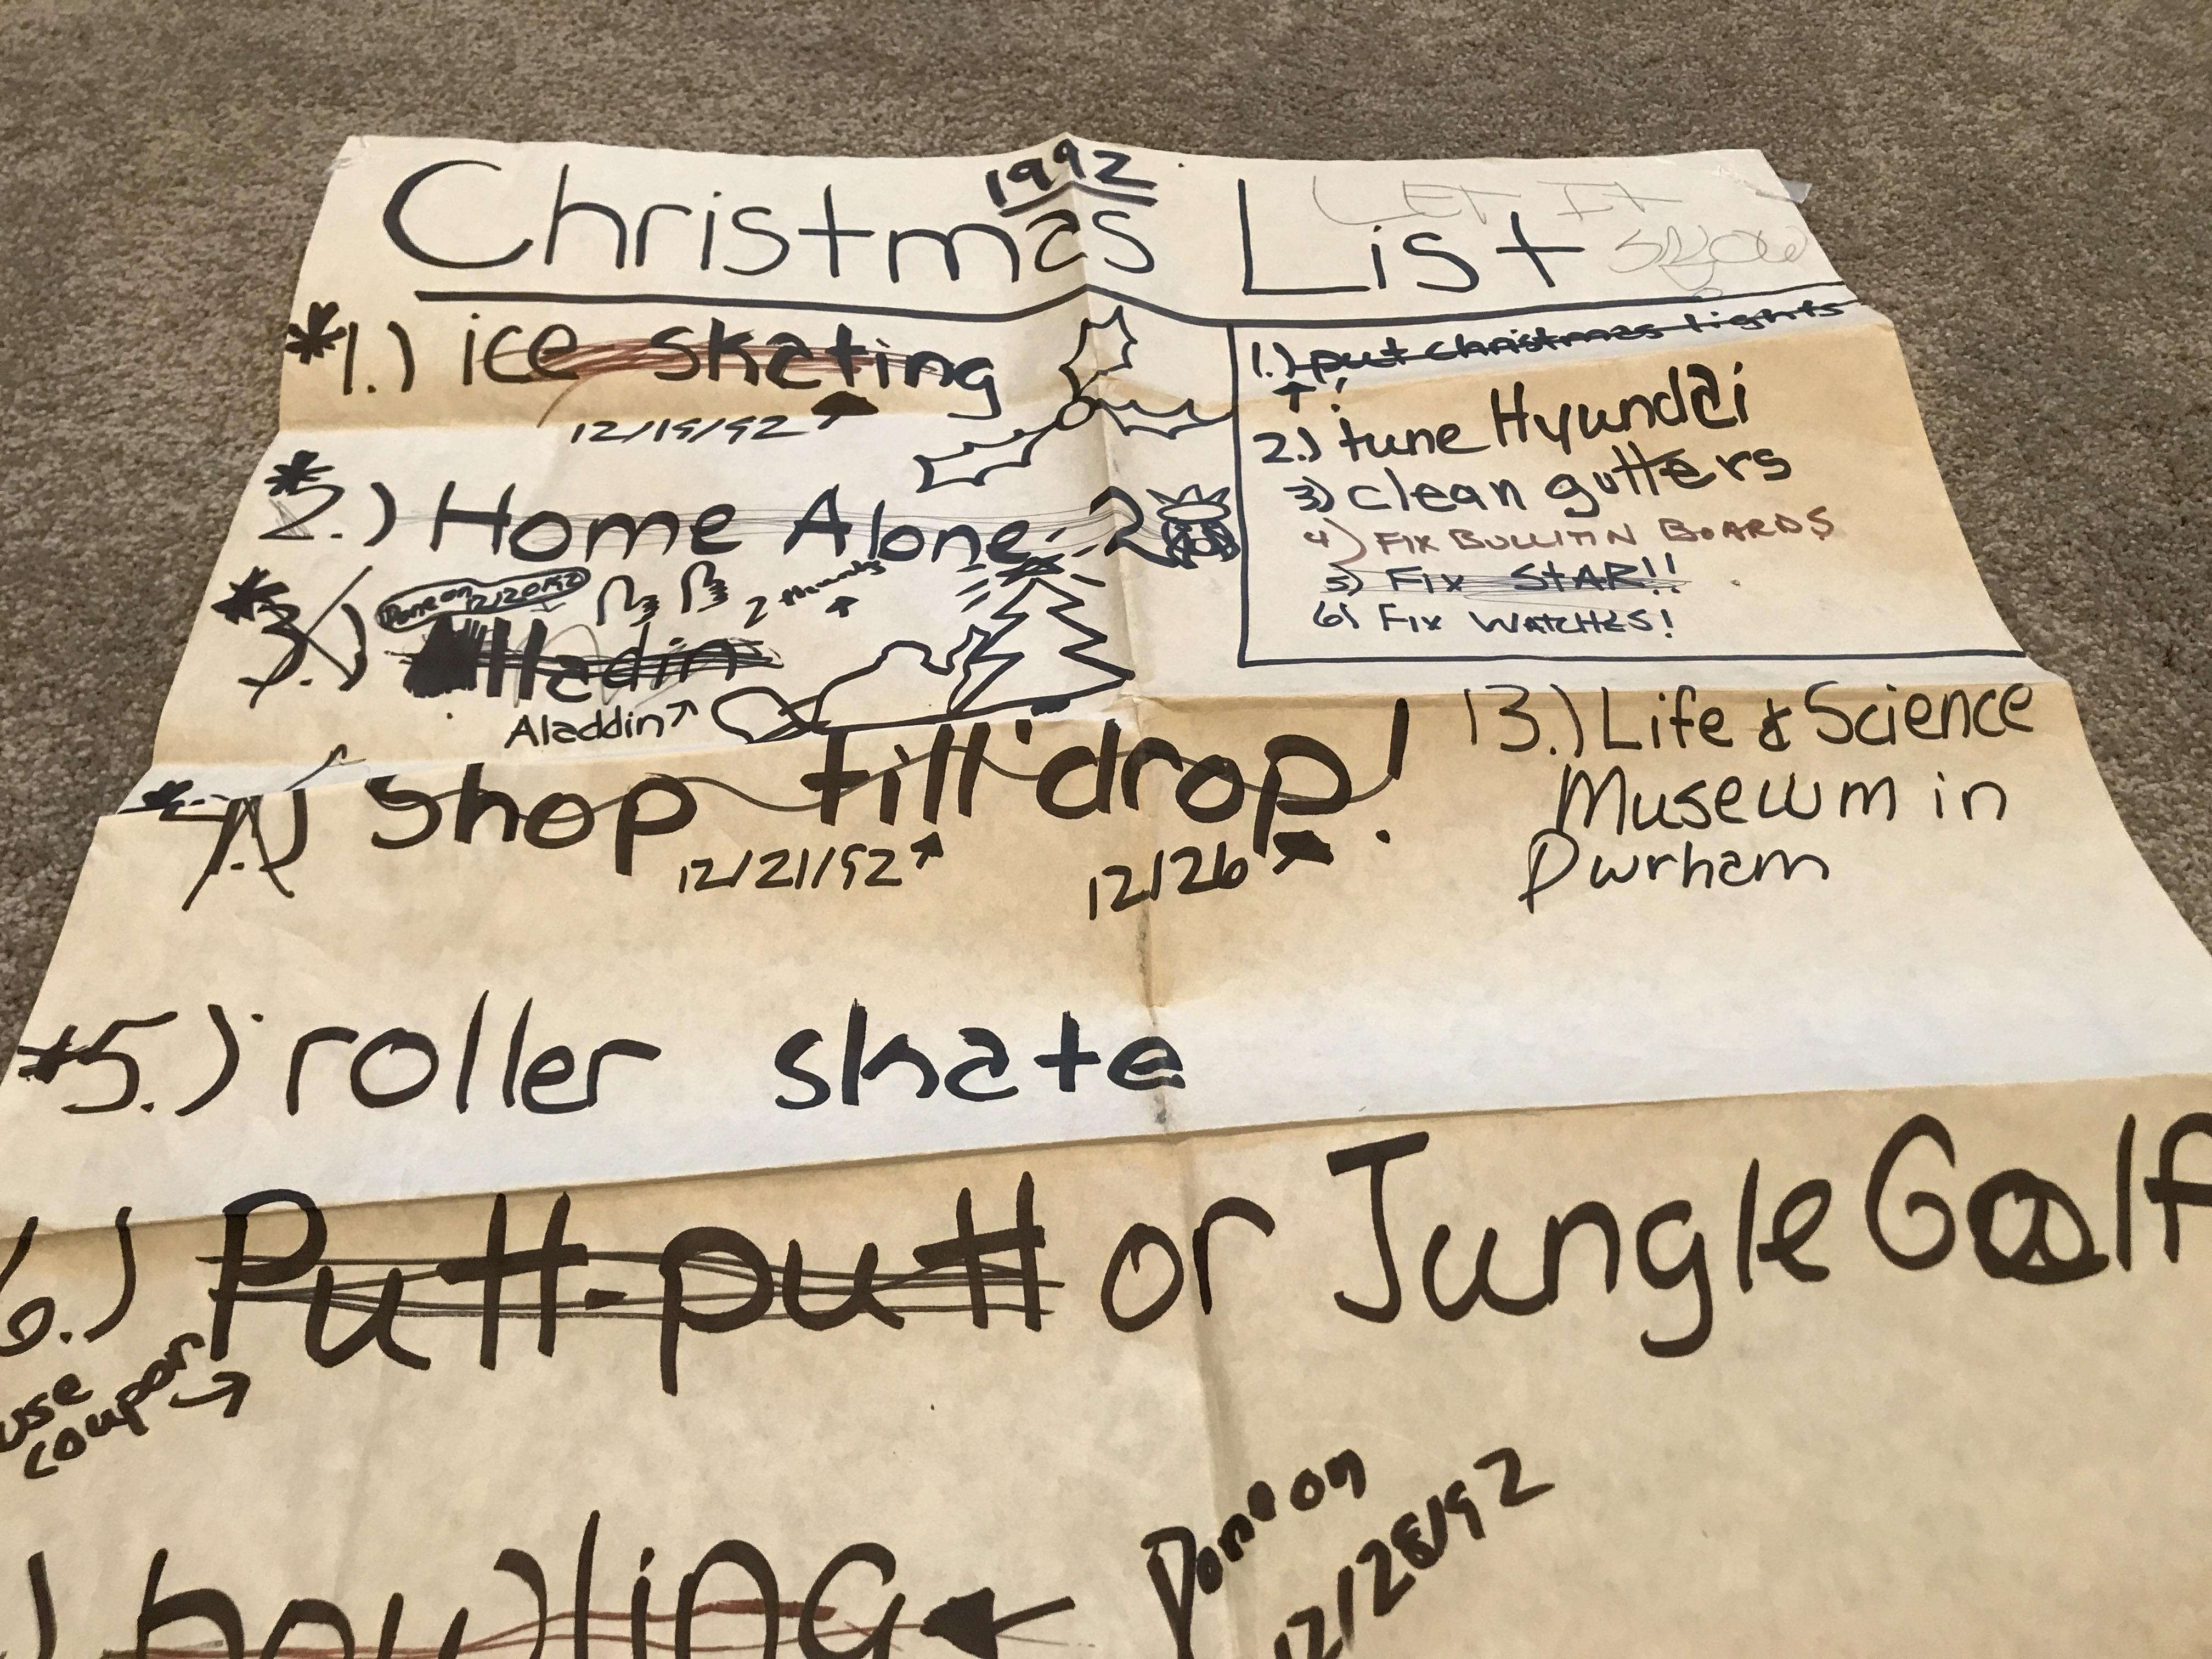 1992
Christmas List
LET IT
SNOW
*1.) ice skating
12/19/92
*2.) Home Alone 2
*3.) Alladin
Done on 12/20/92
2 thumbs
Aladdin
*4.) Shop till drop!
12/21/92
12/26
*5.) roller skate
6.) Putt-putt or Jungle Golf
use
coupon
) bowling
Done on
12/28/92
1.) put christmas lights
2.) tune Hyundai
3) clean gutters
4) FIX BULLITIN BOARDS
5) FIX STAR!!
6) FIX WATCHES!
13.) Life & Science
Museum in
Durham